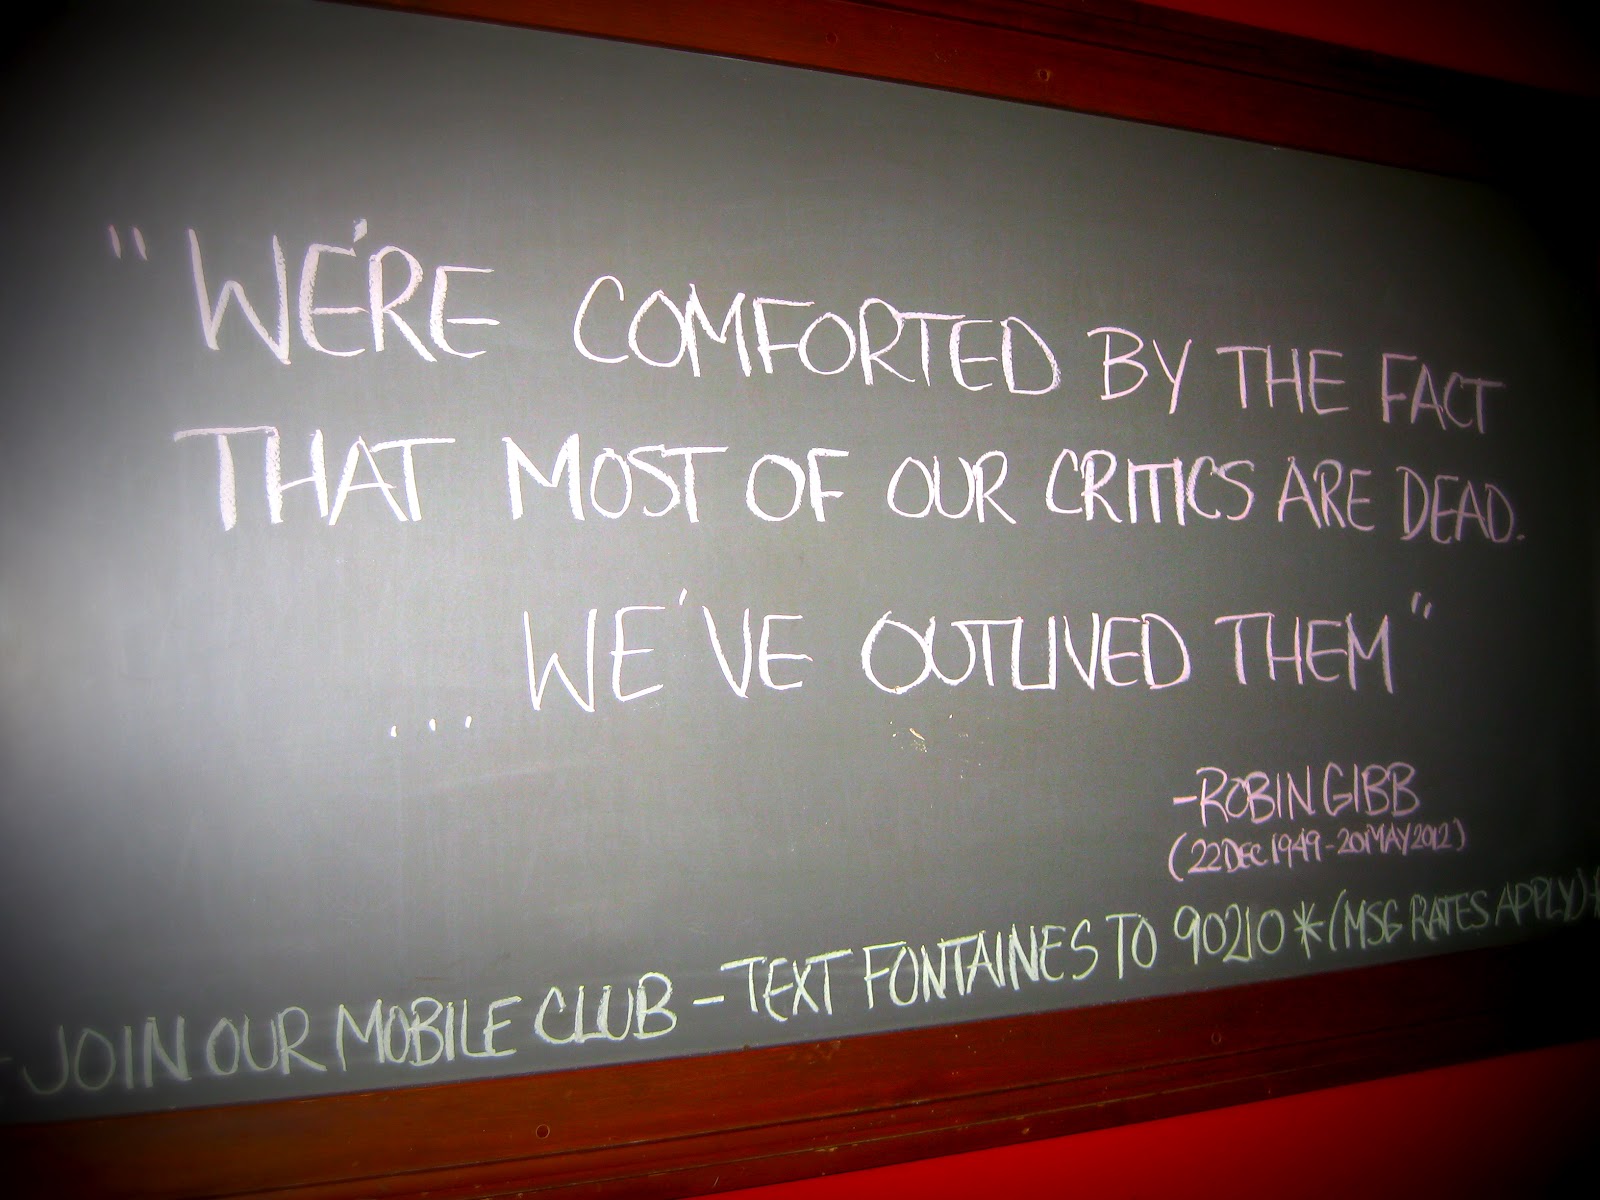 "WE'RE COMFORTED BY THE FACT
THAT MOST OF OUR CRITICS ARE DEAD.
.... WE'VE OUTLIVED THEM"
-ROBIN GIBB
(22 DEC 1949 - 20 MAY 2012)
- JOIN OUR MOBILE CLUB - TEXT FONTAINES TO 90210 * (MSG RATES APPLY) -